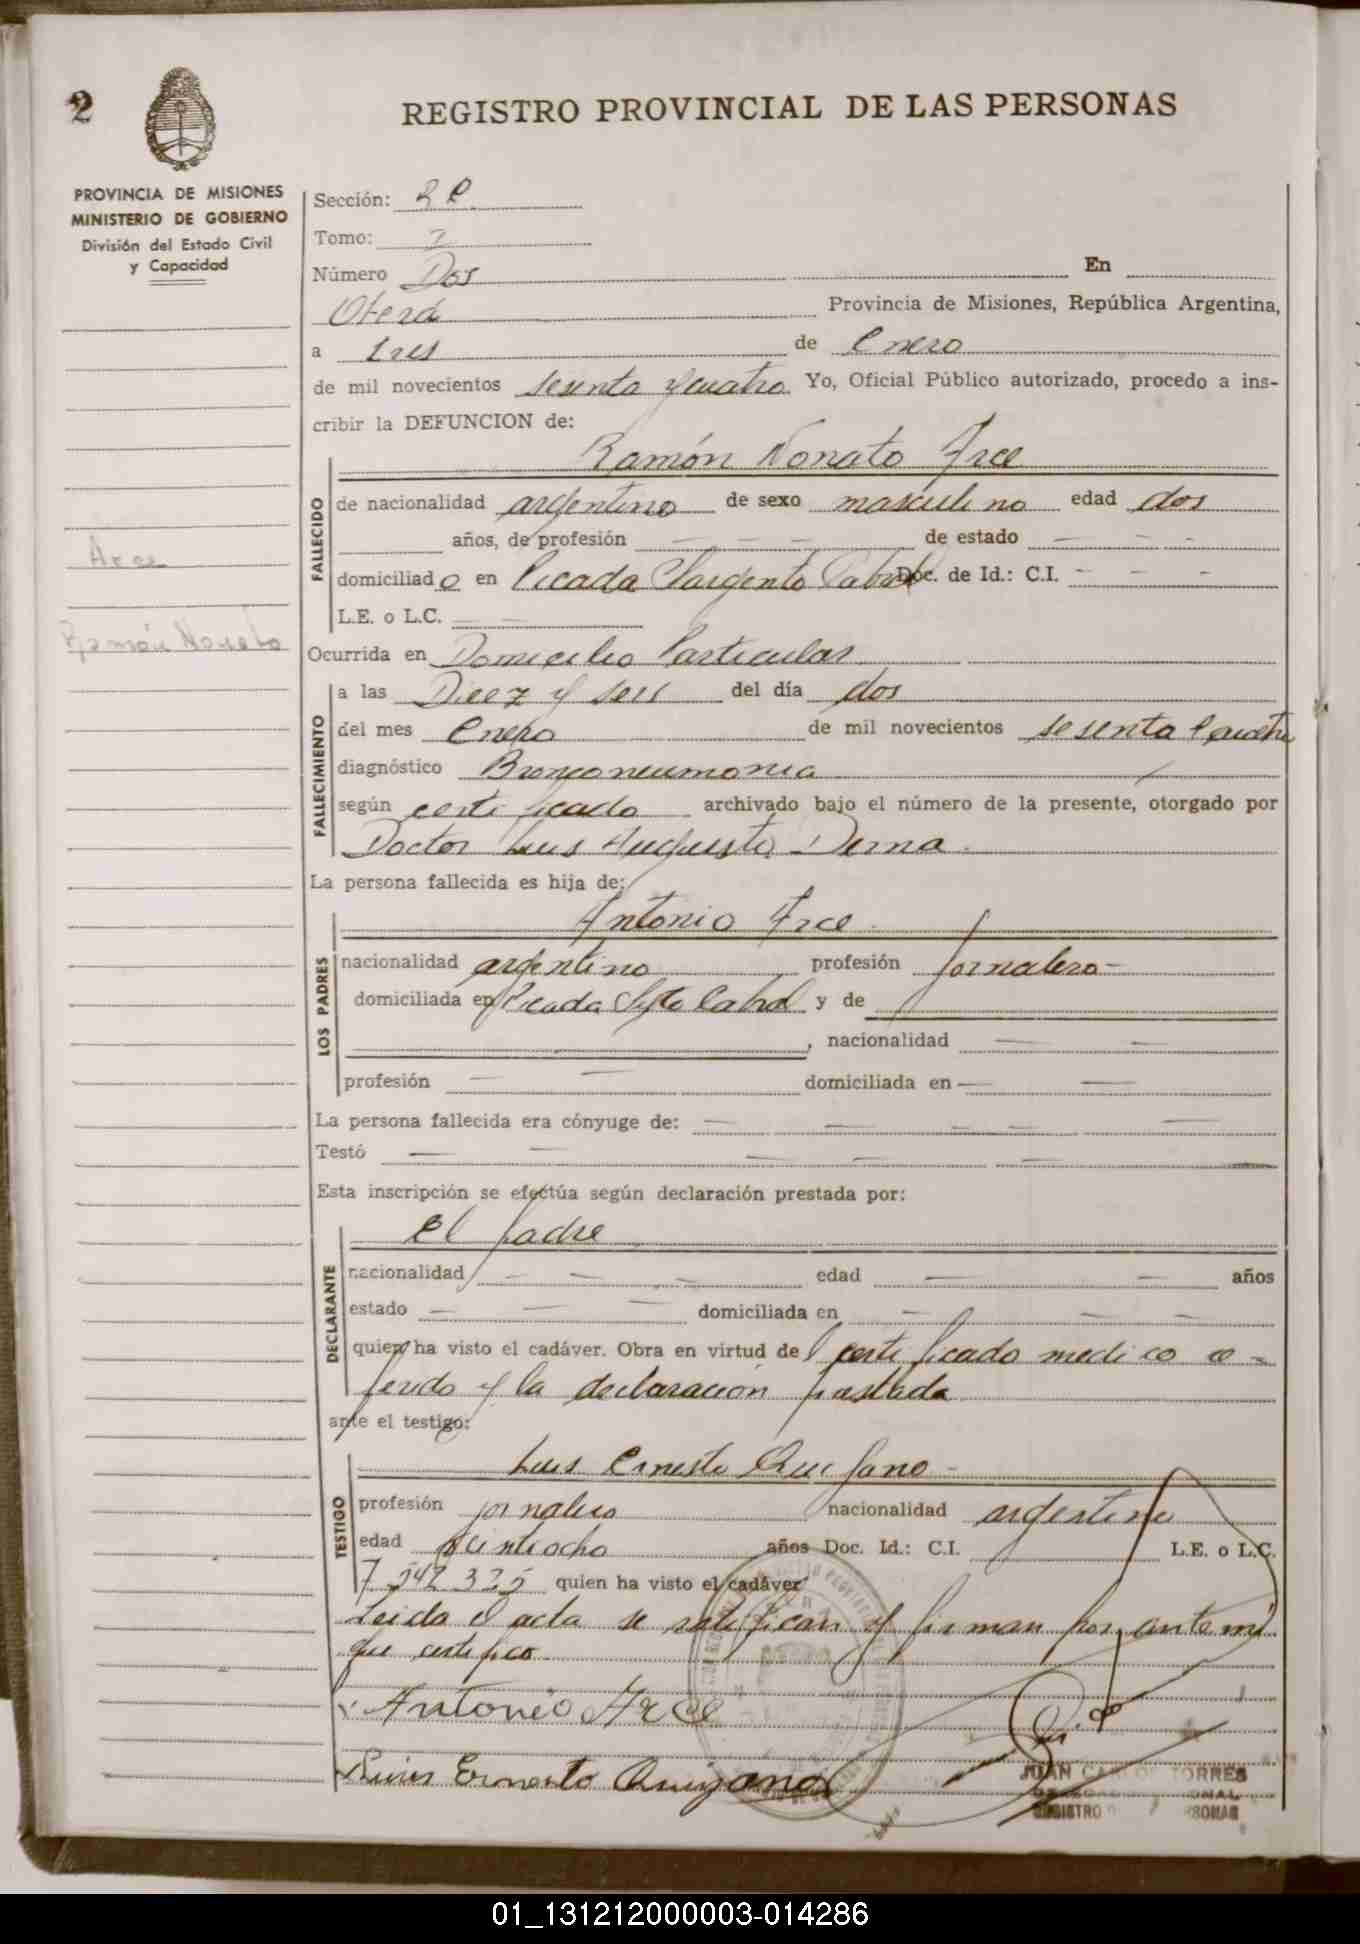 2
REGISTRO PROVINCIAL DE LAS PERSONAS
PROVINCIA DE MISIONES
MINISTERIO DE GOBIERNO
División del Estado Civil
y Capacidad
Arce
Ramón Nonato
Sección:
Tomo:
Número Dos En
Oberá Provincia de Misiones, República Argentina,
a tres de Enero
de mil novecientos sesenta y cuatro Yo, Oficial Público autorizado, procedo a ins-
cribir la DEFUNCION de:
Ramón Nonato Arce
FALLECIDO
de nacionalidad argentino de sexo masculino edad dos
años, de profesión — — — de estado — — —
domiciliado en Picada Sargento Cabral Doc. de Id.: C.I. - - -
L.E. o L.C. — —
Ocurrida en Domicilio Particular
FALLECIMIENTO
a las Diez y seis del día dos
del mes Enero de mil novecientos sesenta y cuatro
diagnóstico Bronconeumonia
según certificado archivado bajo el número de la presente, otorgado por
Doctor Luis Augusto Derna.
La persona fallecida es hija de:
LOS PADRES
Antonio Arce.
nacionalidad argentino profesión jornalero-
domiciliada en Picada Sgto Cabral y de
, nacionalidad — —
profesión — — domiciliada en — —
La persona fallecida era cónyuge de: — — — — —
Testó — — — — — —
Esta inscripción se efectúa según declaración prestada por:
DECLARANTE
El padre
nacionalidad — — — edad — — años
estado — — — domiciliada en — — —
quien ha visto el cadáver. Obra en virtud del certificado medico re-
ferido y la declaración prestada
ante el testigo:
TESTIGO
Luis Ernesto Quijano -
profesión jornalero nacionalidad argentino
edad veintiocho años Doc. Id.: C.I. L.E. o L.C.
7 542 335 quien ha visto el cadáver
Leida el acta se ratifican y firman por ante mi
que certifico.
Antonio Arce
Luis Ernesto Quijano
JUAN CARLOS TORRES
REGISTRO
01_131212000003-014286